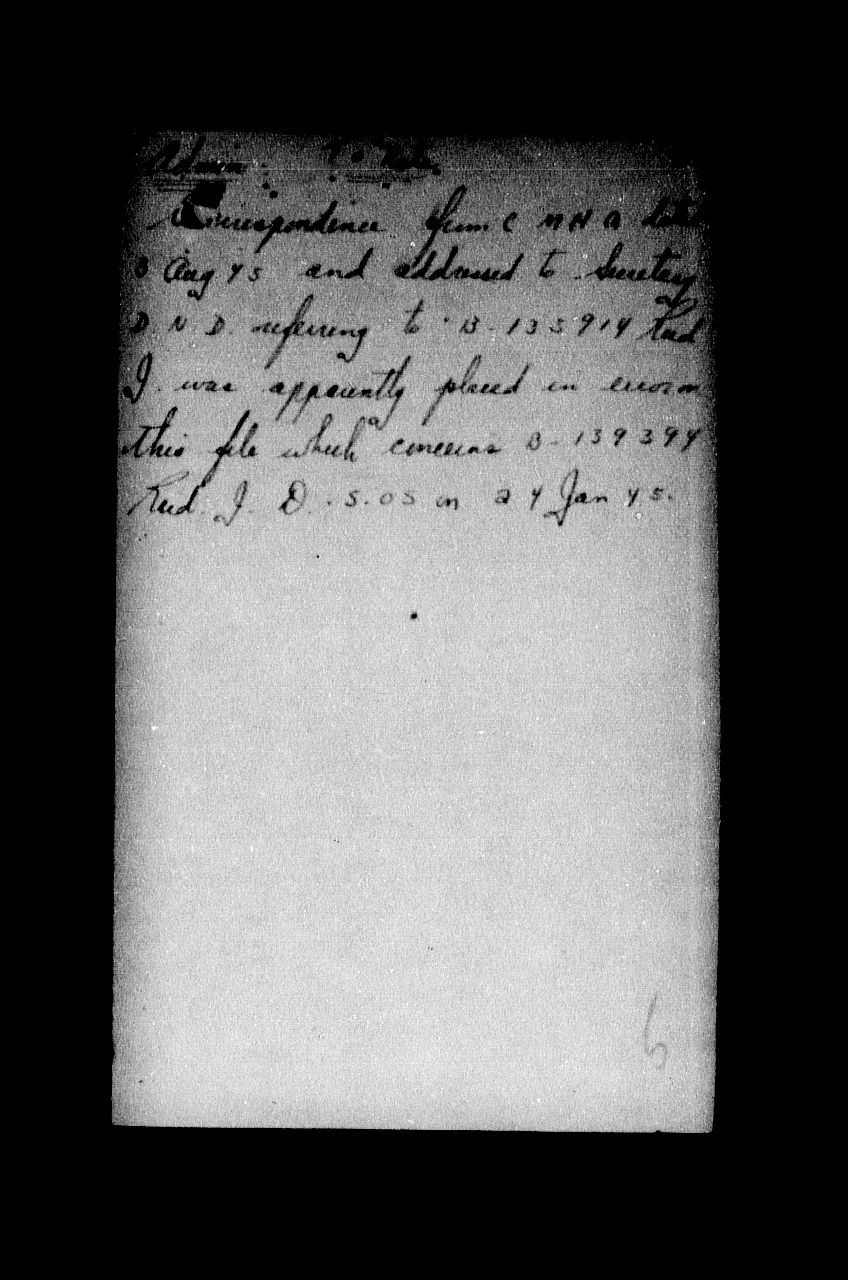 Admin :
Correspondence from C M H Q dated
3 Aug 45 and addressed to Secretary
D. N. D. referring to B-135914 Reid
J. was apparently placed in error on
this file which concerns B-139394
Reid. J. D. - S.O.S on 24 Jan 45.
6